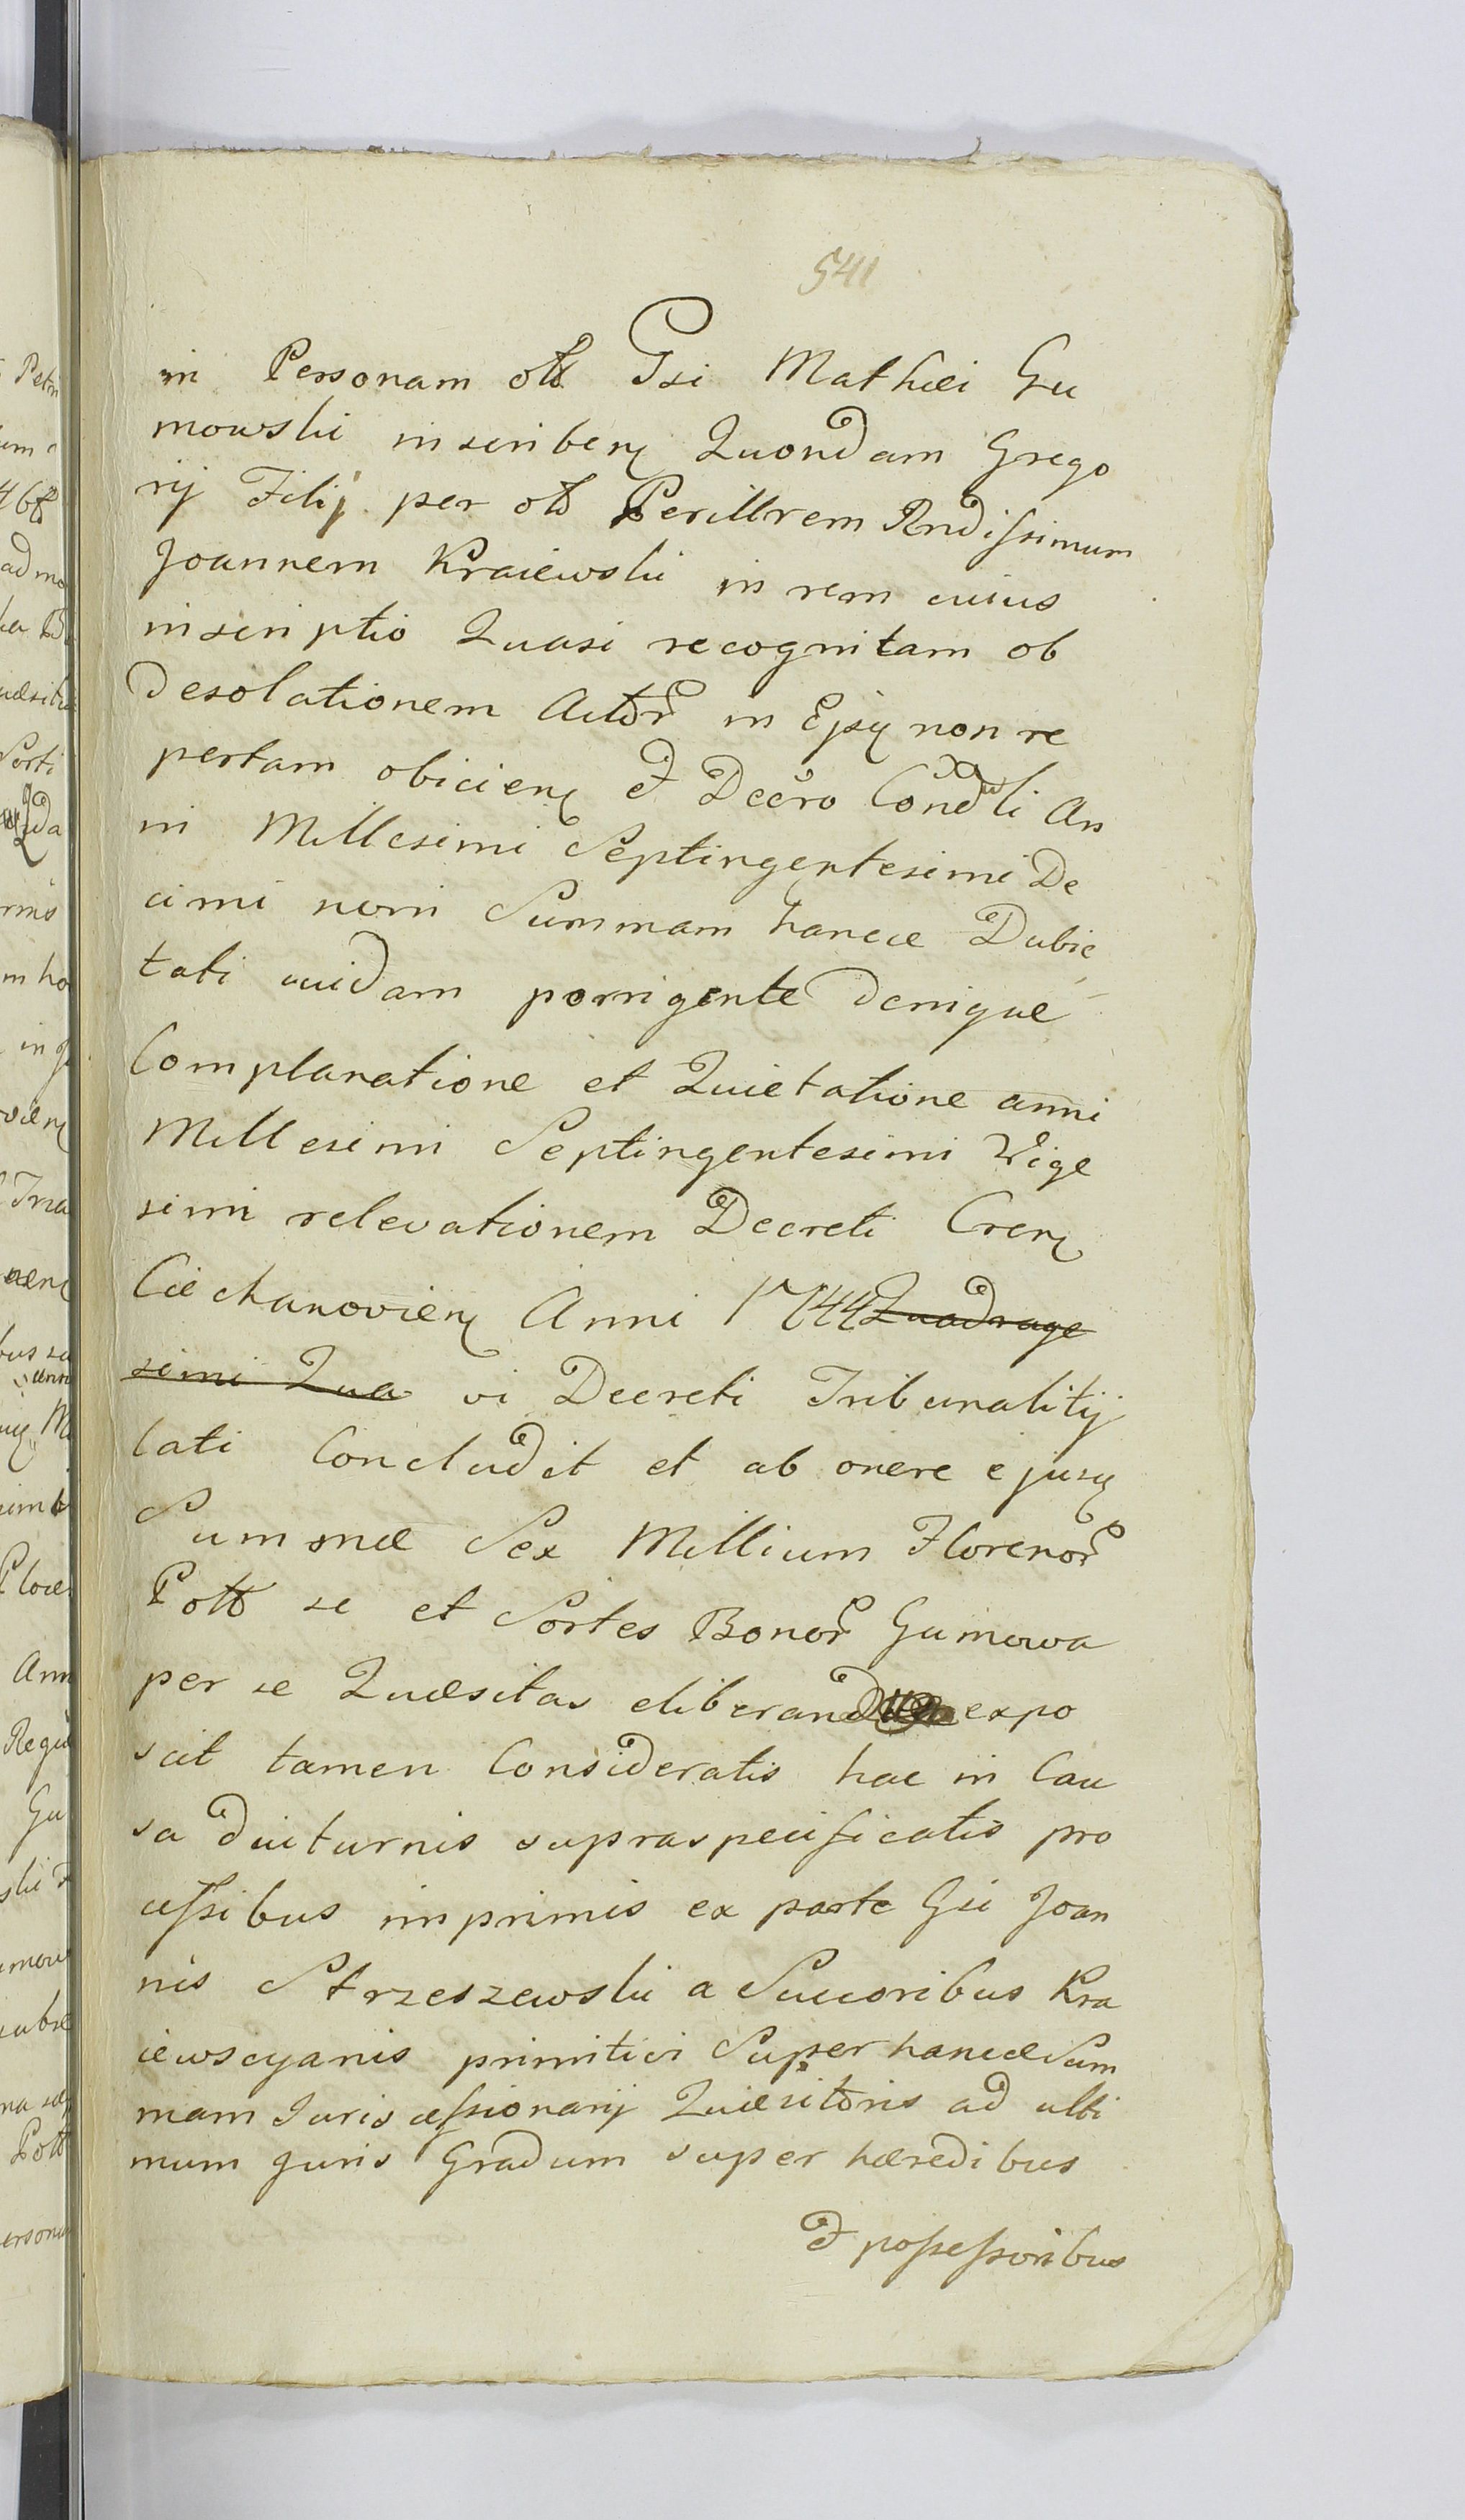 541
in Personam olb Gsi Mathæi Gu
mowski inscriben Quondam Grego
rij Filij per olb Perillrem Rndissimum
Joannem Kraiewski in rem cuius
inscriptio Quasi recognitam ob
Desolationem Actor in Ejsq non re
pertam obicien et Decro Cond li An
ni Millesimi Septingentesimi De
cimi noni Summam hancce Dubie
tati cuidam porrigente denique
Complanatione et Quietatione anni
Millesimi Septingentesimi Vige
simi relevationem Decreti Cren
Ciechanovien Anni 1744 Quadrage
simi Qua vi Decreti Tribunalitij
lati Concludit et ab onere ejusq
Summæ Sex Millium Florenor
Poll se et Sortes Bonor Gumowa
per se Quæsitas eliberand expo
scit tamen Consideratis hac in Cau
sa diuturnis supraspecificatis pro
cessibus imprimis ex parte Gsi Joan
nis Strzeszewski a Succoribus Kra
iewscyanis primitivi Super hancce Sum
mam Juris cessionarij Quæsitoris ad ulti
mum Juris Gradum super hæredibus
et possessoribus